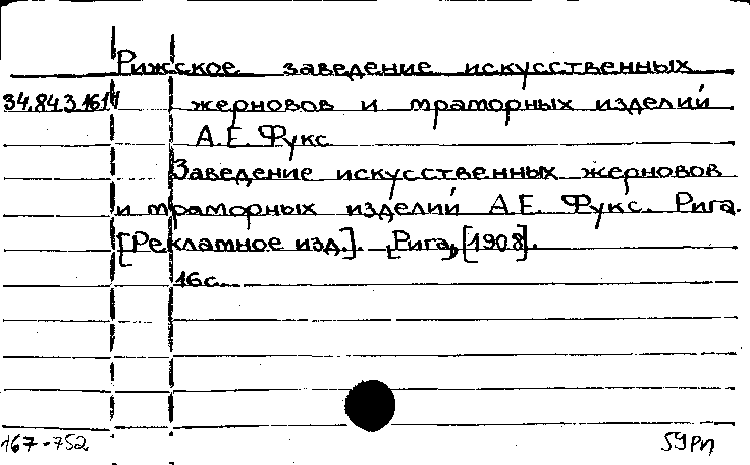 Рижское заведение искусственных
34.84.3.161 жерновов и мраморных изделий
А.Е. Фукс
Заведение искусственных жерновов
и мраморных изделий А.Е. Фукс. Рига.
[Рекламное изд.]. [Рига], [1908].
16с.
167-752